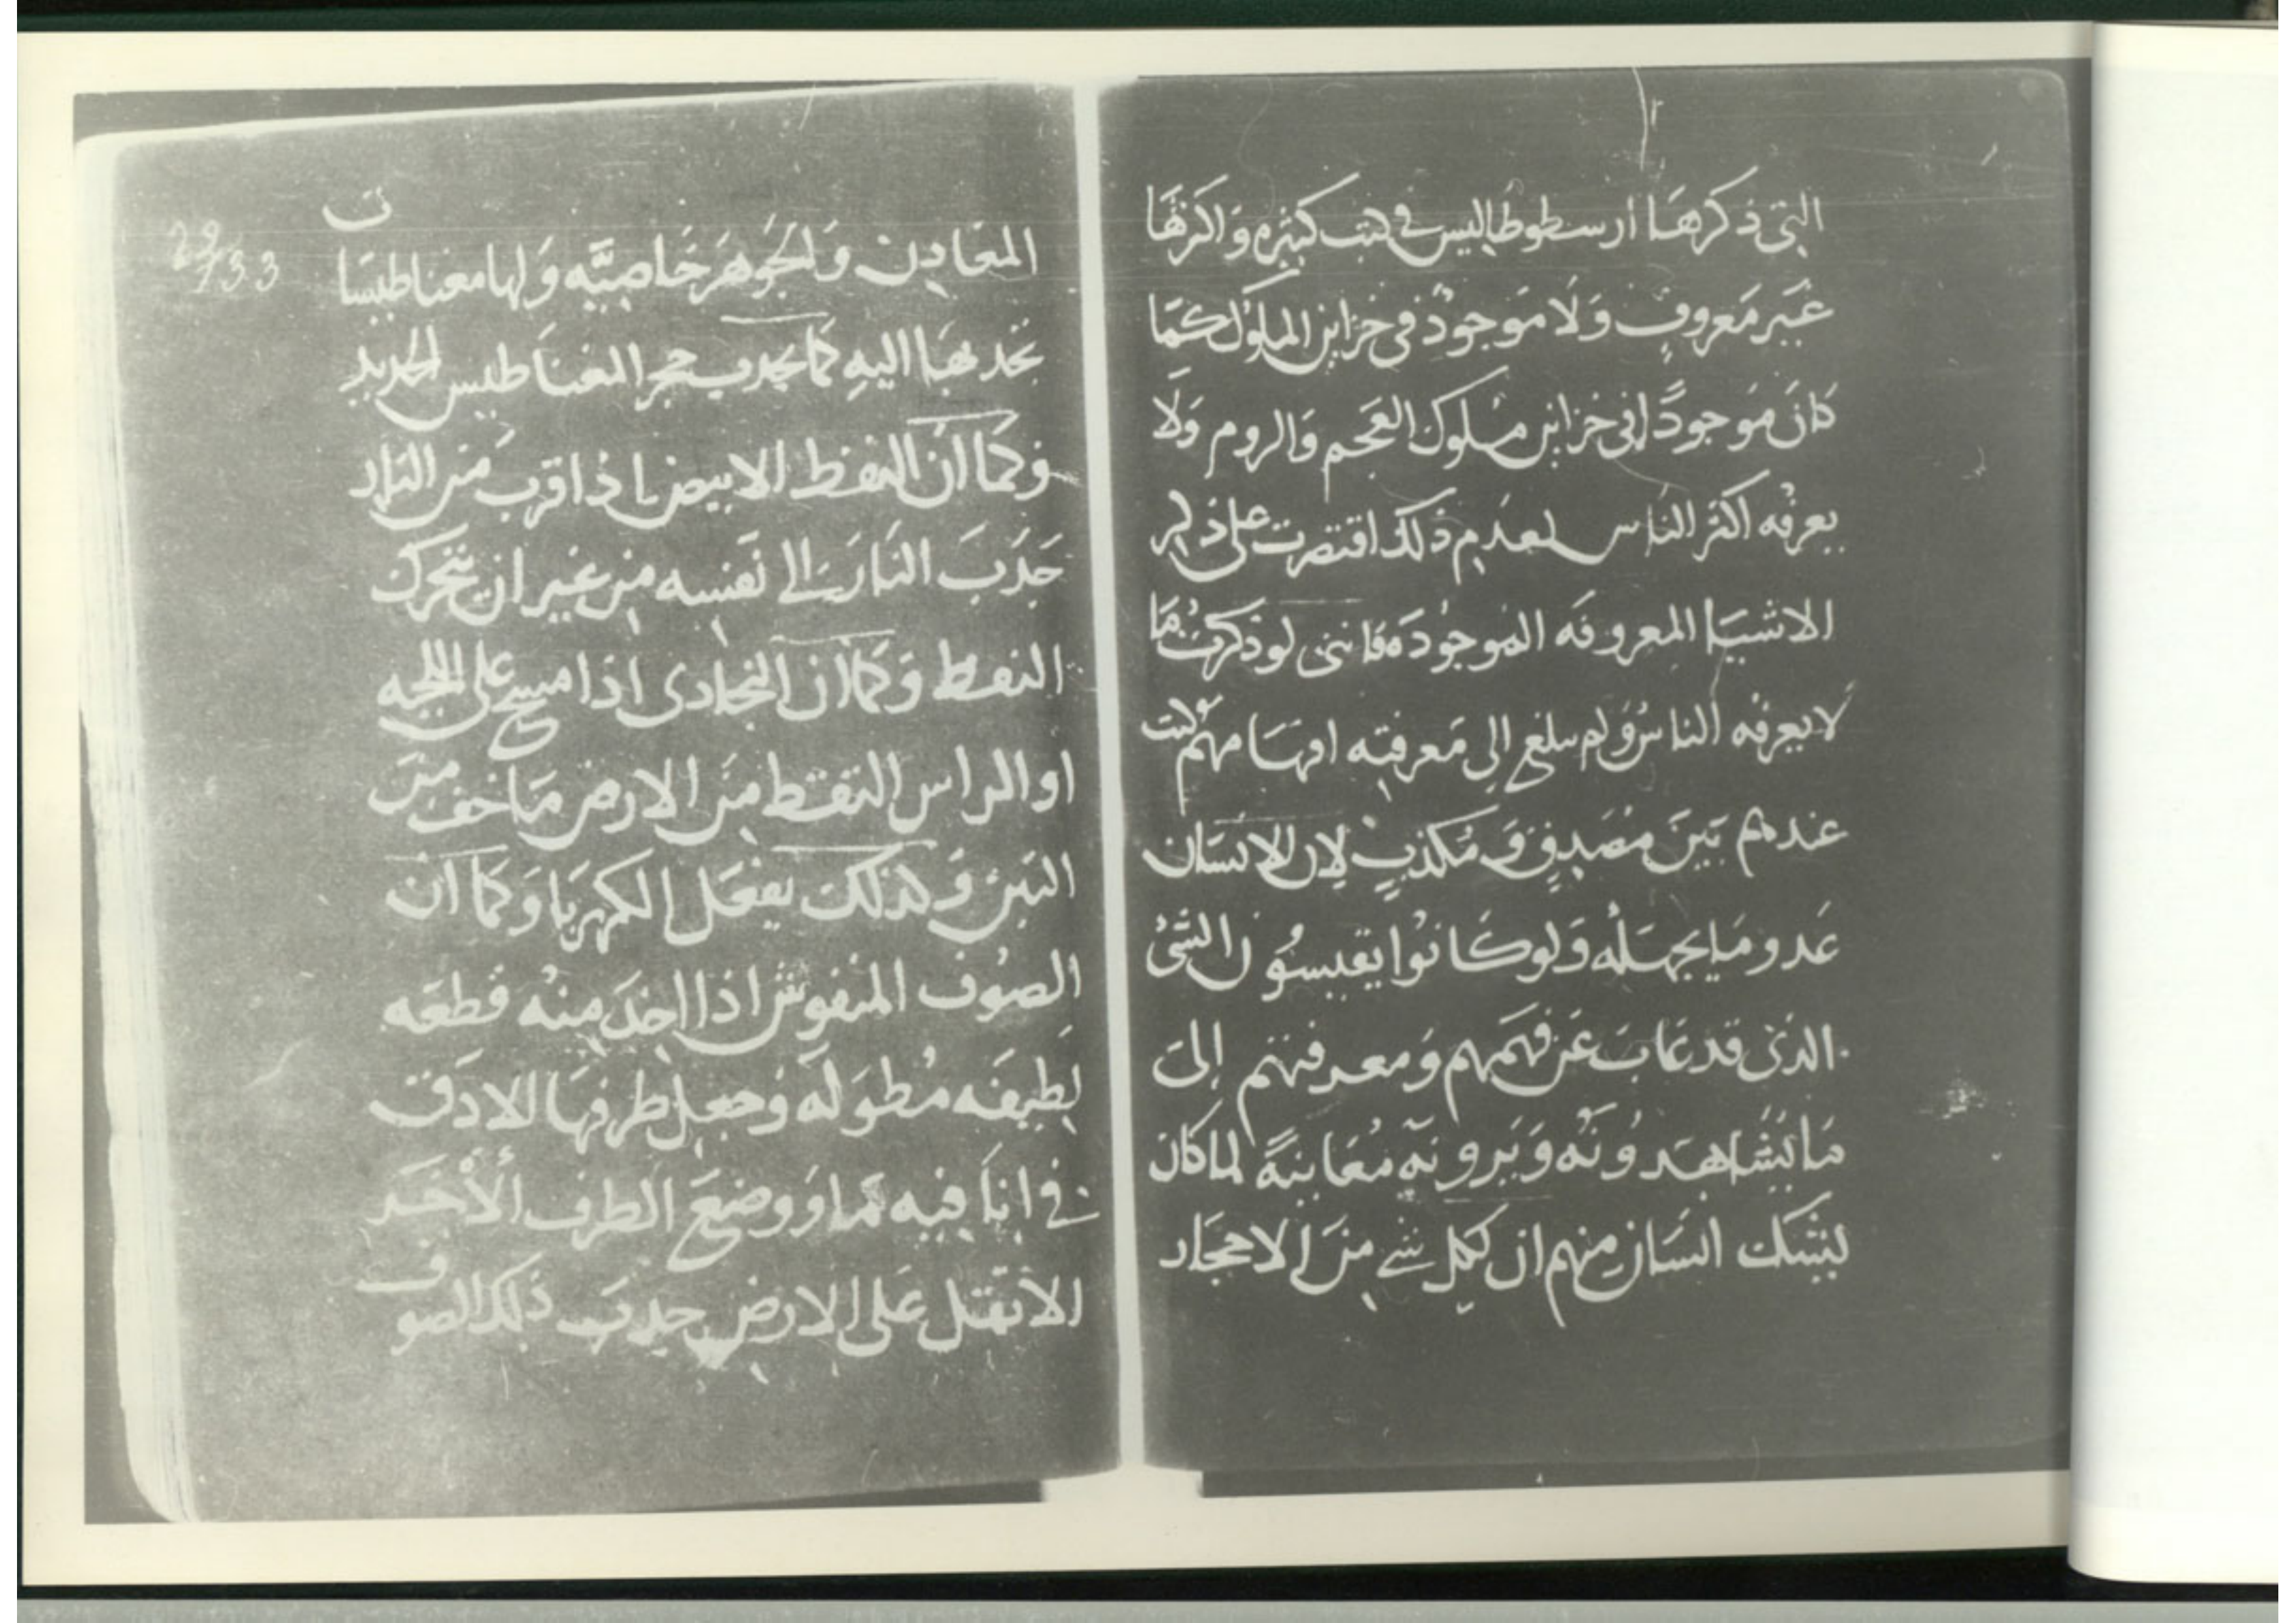 التى ذكرها ارسطوطاليس في كتب كثيره وَاكثرهَا
غَير مَعروفٍ وَلَا مَوجودٌ فى خزاين الملوك كمَا
كانَ مَوجودًا فى خزاين ملوك العَجم وَالروم وَلَا
يعرفُه اكثر النَاس لعدم ذلك اقتصرت على ذكر
الاشيَا المعروفه الموجُودَه فاننى لو ذكرتُ مَا
لا يعرفُه الناسُ وَلم يبلغ الى مَعرفتِه افهَامهم كنت
عندهم بَينَ مُصَدِقٍ وَ مُكذبٍ لان الانسَان
عَدو مَا يجهَلُه وَلو كَانوُا يقيسُون الشئ
الذى قد غابَ عَن فهَمهم وَمعرفتهم إلىَ
مَا يُشاهدوُنَه وَيَرونَه مُعَاينةً لما كان
ليشك انسَان منهم ان لكل شے منَ الاحجَار
29/33
المعَادِن وَالجَوُهَر خَاصِيَّه وَلها مغناطيسَا
تجذبهَا اليهِ كما يجدب حجر المغناَطيس الحديد
وَكمَا انَ النفط الابيض اذا قرب منَ النار
جَذبَ النَارَ الے نَفسِه مِن غير ان يتحرك
النفط وَكما ان النجادى اذا مسح على اللحيه
او الراس التقط منَ الارض مَا خف منَ
التبن وَكذلك يفعَل الكهربَا وَكما ان
الصوُف المنفوش اذا اخذَ مِنهُ قطعَه
لطِيفَه مُطوَلَه وَجعل طرفهَا الادَق
فے انَا فيِه مَا وَ وضعَ الطرف الأخَر
الاثقل على الارض جدبَ ذلك الصوف